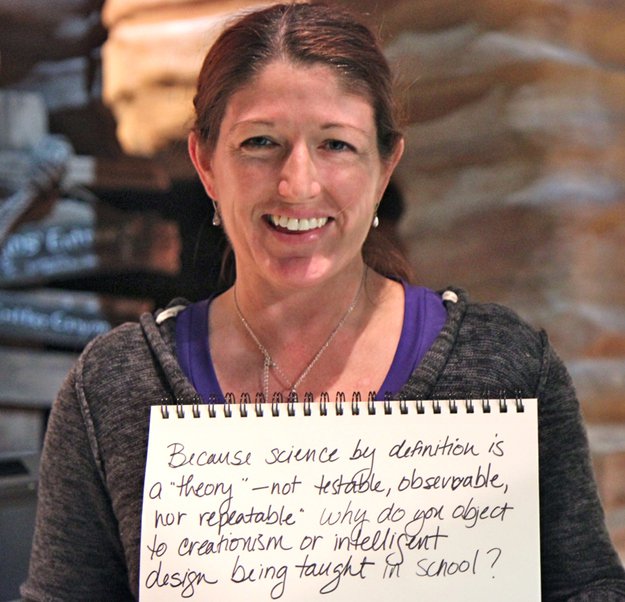 Because science by definition is
a "theory" - not testable, observable,
nor repeatable" why do you object
to creationism or intelligent
design being taught in school?